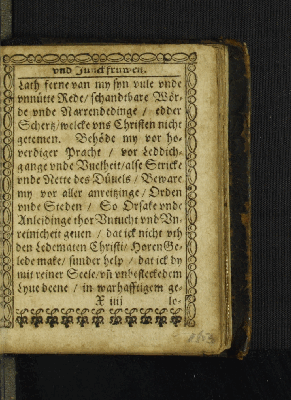 vnd Junckfruwen.
Lath ferne van my syn vule vnde
vnnütte Rede/ schandtbare Wör-
de vnde Narrendedinge / edder
Schertz/ welcke vns Christen nicht
getemen. Behöde my vor ho-
verdiger Pracht / vor Leddich-
gange vnde Vuelheit/ alse Stricke
vnde Nette des Düuels / Beware
my vor aller anreitzinge/ Orden
vnde Steden / So Orsake vnde
Anleidinge thor Vntucht vnd Vn-
reinicheit geuen / dat ick nicht vth
den Ledematen Christi/ Horen Ge-
lede make/ sunder help / dat ick dy
mit reiner Seele/ vñ vnbeflecketem
Lyue deene / in warhafftigem ge-
X iiij lo-